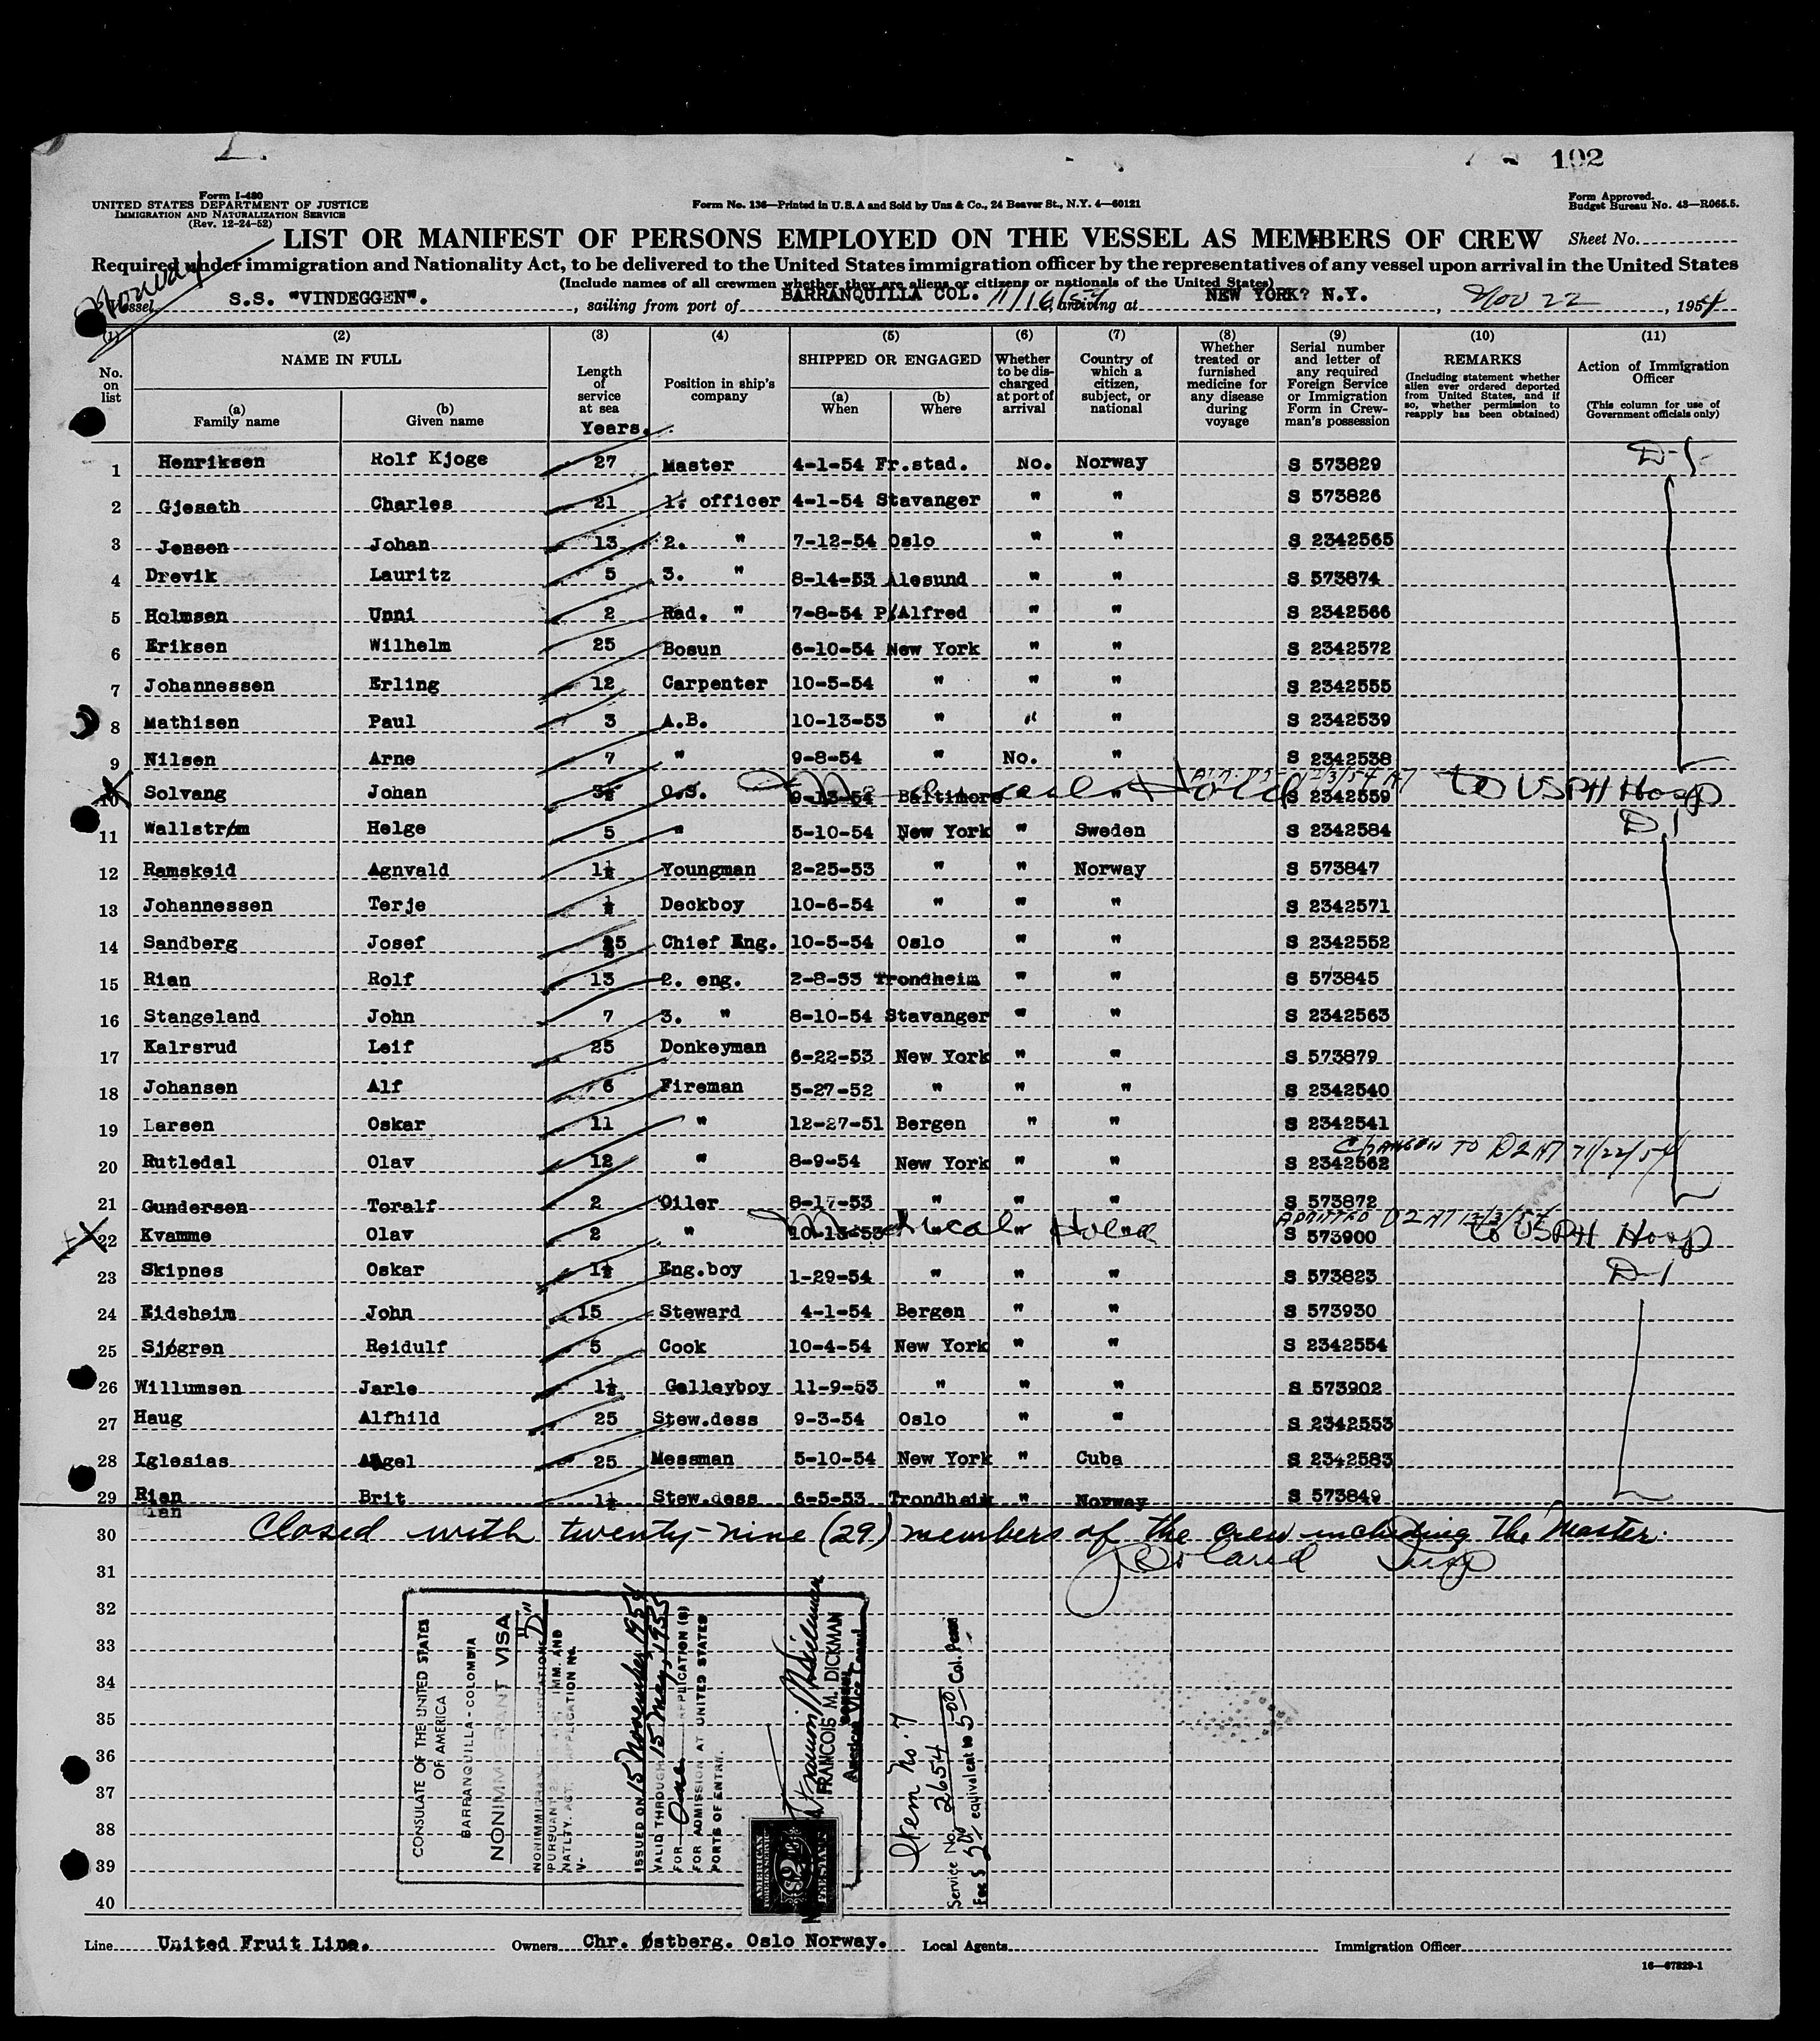 102
Form I-480
UNITED STATES DEPARTMENT OF JUSTICE
IMMIGRATION AND NATURALIZATION SERVICE
(Rev. 12-24-52)
Form No. 136—Printed in U.S.A and Sold by Unz & Co., 24 Beaver St., N.Y. 4—60121
Form Approved.
Budget Bureau No. 43—R065.5.
LIST OR MANIFEST OF PERSONS EMPLOYED ON THE VESSEL AS MEMBERS OF CREW
Sheet No.
Required under immigration and Nationality Act, to be delivered to the United States immigration officer by the representatives of any vessel upon arrival in the United States
(Include names of all crewmen whether they are aliens or citizens or nationals of the United States)
Norway
Vessel S.S. "VINDEGGEN". , sailing from port of BARRANQUILLA COL. 11/16/54, arriving at NEW YORK? N.Y. , Nov 22 , 1954
(1) (2) (3) (4) (5) (6) (7) (8) (9) (10) (11)
No. on list
NAME IN FULL
(a) Family name
(b) Given name
Length of service at sea
Years.
Position in ship's company
SHIPPED OR ENGAGED
(a) When
(b) Where
Whether to be discharged at port of arrival
Country of which a citizen, subject, or national
Whether treated or furnished medicine for any disease during voyage
Serial number and letter of any required Foreign Service or Immigration Form in Crewman's possession
REMARKS
(Including statement whether alien ever ordered deported from United States, and if so, whether permission to reapply has been obtained)
Action of Immigration Officer
(This column for use of Government officials only)
1 Henriksen Rolf Kjoge 27 Master 4-1-54 Fr.stad. No. Norway S 573829 D-1
2 Gjeseth Charles 21 1. officer 4-1-54 Stavanger " " S 573826
3 Jensen Johan 13 2. " 7-12-54 Oslo " " S 2342565
4 Drevik Lauritz 5 3. " 8-14-53 Alesund " " S 573874
5 Holmsen Unni 2 Rad. " 7-8-54 P/Alfred " " S 2342566
6 Eriksen Wilhelm 25 Bosun 6-10-54 New York " " S 2342572
7 Johannessen Erling 12 Carpenter 10-5-54 " " " S 2342555
8 Mathisen Paul 3 A.B. 10-13-53 " " " S 2342539
9 Nilsen Arne 7 " 9-8-54 " No. " S 2342538
10 Solvang Johan 3½ O.S. 9-13-54 Baltimore " " S 2342559 Medical Hold to USPH Hosp
11 Wallstrøm Helge 5 " 5-10-54 New York " Sweden S 2342584 D-1
12 Ramskeid Agnvald 1½ Youngman 2-25-53 " " Norway S 573847
13 Johannessen Terje ½ Deckboy 10-6-54 " " " S 2342571
14 Sandberg Josef 25 Chief Eng. 10-5-54 Oslo " " S 2342552
15 Rian Rolf 13 2. eng. 2-8-53 Trondheim " " S 573845
16 Stangeland John 7 3. " 8-10-54 Stavanger " " S 2342563
17 Kalrsrud Leif 25 Donkeyman 6-22-53 New York " " S 573879
18 Johansen Alf 6 Fireman 5-27-52 " " " S 2342540
19 Larsen Oskar 11 " 12-27-51 Bergen " " S 2342541
20 Rutledal Olav 12 " 8-9-54 New York " " S 2342562 CHANGED TO D2 NY 11/22/54
21 Gundersen Toralf 2 Oiler 8-17-53 " " " S 573872
22 Kvamme Olav 2 " 10-13-53 Medical Hold S 573900 ADMITTED D2 NY 12/3/54 to USPH Hosp
23 Skipnes Oskar 1½ Eng.boy 1-29-54 " " " S 573823 D-1
24 Eidsheim John 15 Steward 4-1-54 Bergen " " S 573930
25 Sjøgren Reidulf 5 Cook 10-4-54 New York " " S 2342554
26 Willumsen Jarle 1½ Galleyboy 11-9-53 " " " S 573902
27 Haug Alfhild 25 Stew.dess 9-3-54 Oslo " " S 2342553
28 Iglesias Angel 25 Messman 5-10-54 New York " Cuba S 2342583
29 Rian Brit 1½ Stew.dess 6-5-53 Trondheim " Norway S 573849
30 Closed with twenty-nine (29) members of the crew including The Master.
31
32
33
34
35
36
37
38
39
40
CONSULATE OF THE UNITED STATES
OF AMERICA
BARRANQUILLA - COLOMBIA
NONIMMIGRANT VISA
"D"
ISSUED ON 15 November 1954
VALID THROUGH 15 May, 1955
FOR One APPLICATION (S)
FOR ADMISSION AT UNITED STATES
PORTS OF ENTRY.
FRANCOIS M. DICKMAN
American Vice Consul
AMERICAN
FOREIGN SERVICE
$2
Item No. 7
Service No. 2654
Fee $ 2.00 equivalent to 5.00 Col. Pesos
Line United Fruit Line. Owners Chr. Østberg. Oslo Norway. Local Agents Immigration Officer
16—67829-1